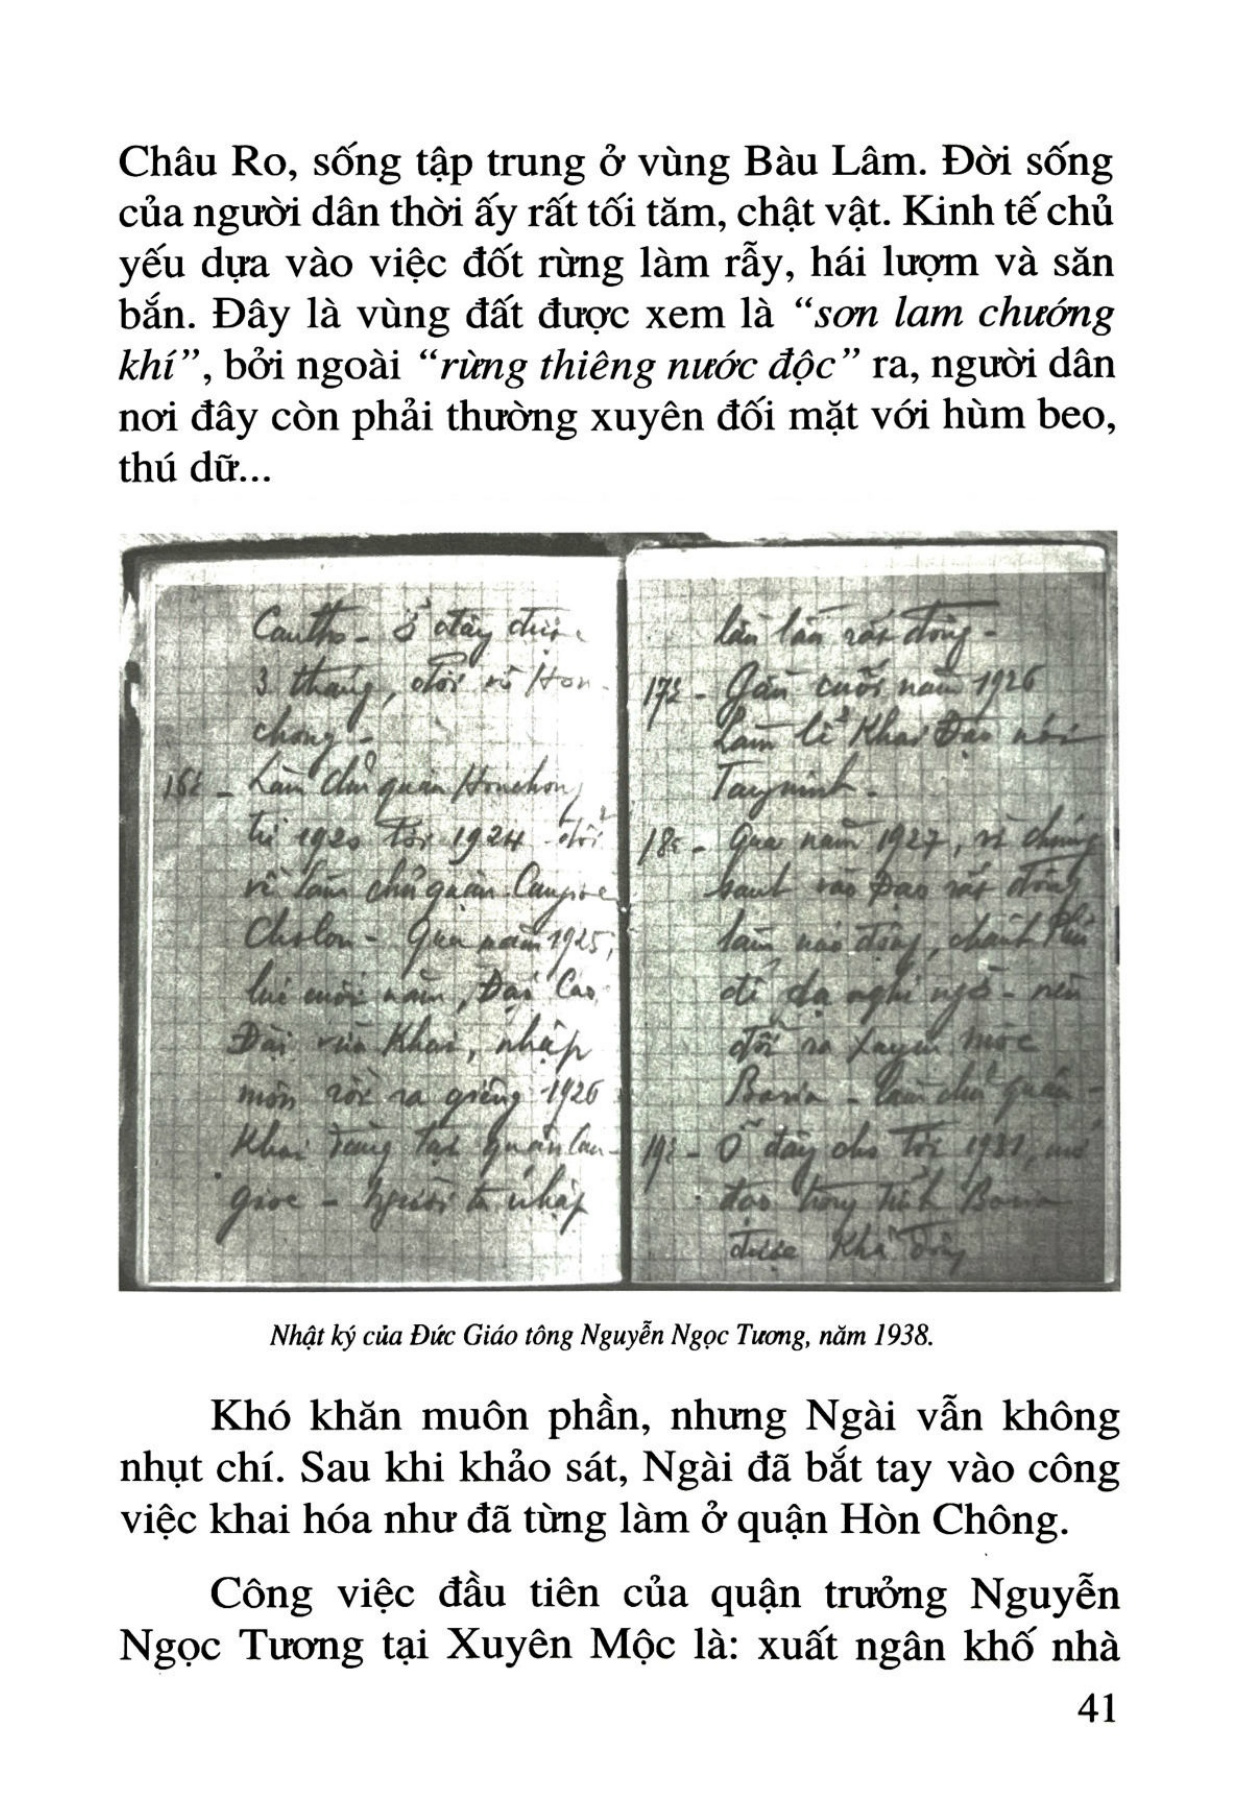 Châu Ro, sống tập trung ở vùng Bàu Lâm. Đời sống
của người dân thời ấy rất tối tăm, chật vật. Kinh tế chủ
yếu dựa vào việc đốt rừng làm rẫy, hái lượm và săn
bắn. Đây là vùng đất được xem là “sơn lam chướng
khí”, bởi ngoài “rừng thiêng nước độc” ra, người dân
nơi đây còn phải thường xuyên đối mặt với hùm beo,
thú dữ...
Cantho - Ở đây được
3 tháng, đổi về Hon
chong -
16è - Làm chủ quận Honchong
từ 1920 tới 1924 đổi
về làm chủ quận
Cholon - Qua năm 1925,
lúc cuối năm, Đạo Cao
Đài vừa Khai, nhập
môn rồi ra giêng 1926
Khai đàng tại quận Can-
gioc - Người ta nhập
lần lần rất đông -
17è - Gần cuối năm 1926
Làm lễ Khai Đạo nơi
Tayninh -
18è - Qua năm 1927, vì chúng
sanh vào Đạo rất đông
làm náo động, chánh Phủ
để dạ nghi ngờ - nên
đổi ra Xuyên mộc
Baria - làm chủ quận -
19è - Ở đây cho tới 1931, mở
đạo trong tỉnh Baria
được Khá đông
Nhật ký của Đức Giáo tông Nguyễn Ngọc Tương, năm 1938.
Khó khăn muôn phần, nhưng Ngài vẫn không
nhụt chí. Sau khi khảo sát, Ngài đã bắt tay vào công
việc khai hóa như đã từng làm ở quận Hòn Chông.
Công việc đầu tiên của quận trưởng Nguyễn
Ngọc Tương tại Xuyên Mộc là: xuất ngân khố nhà
41